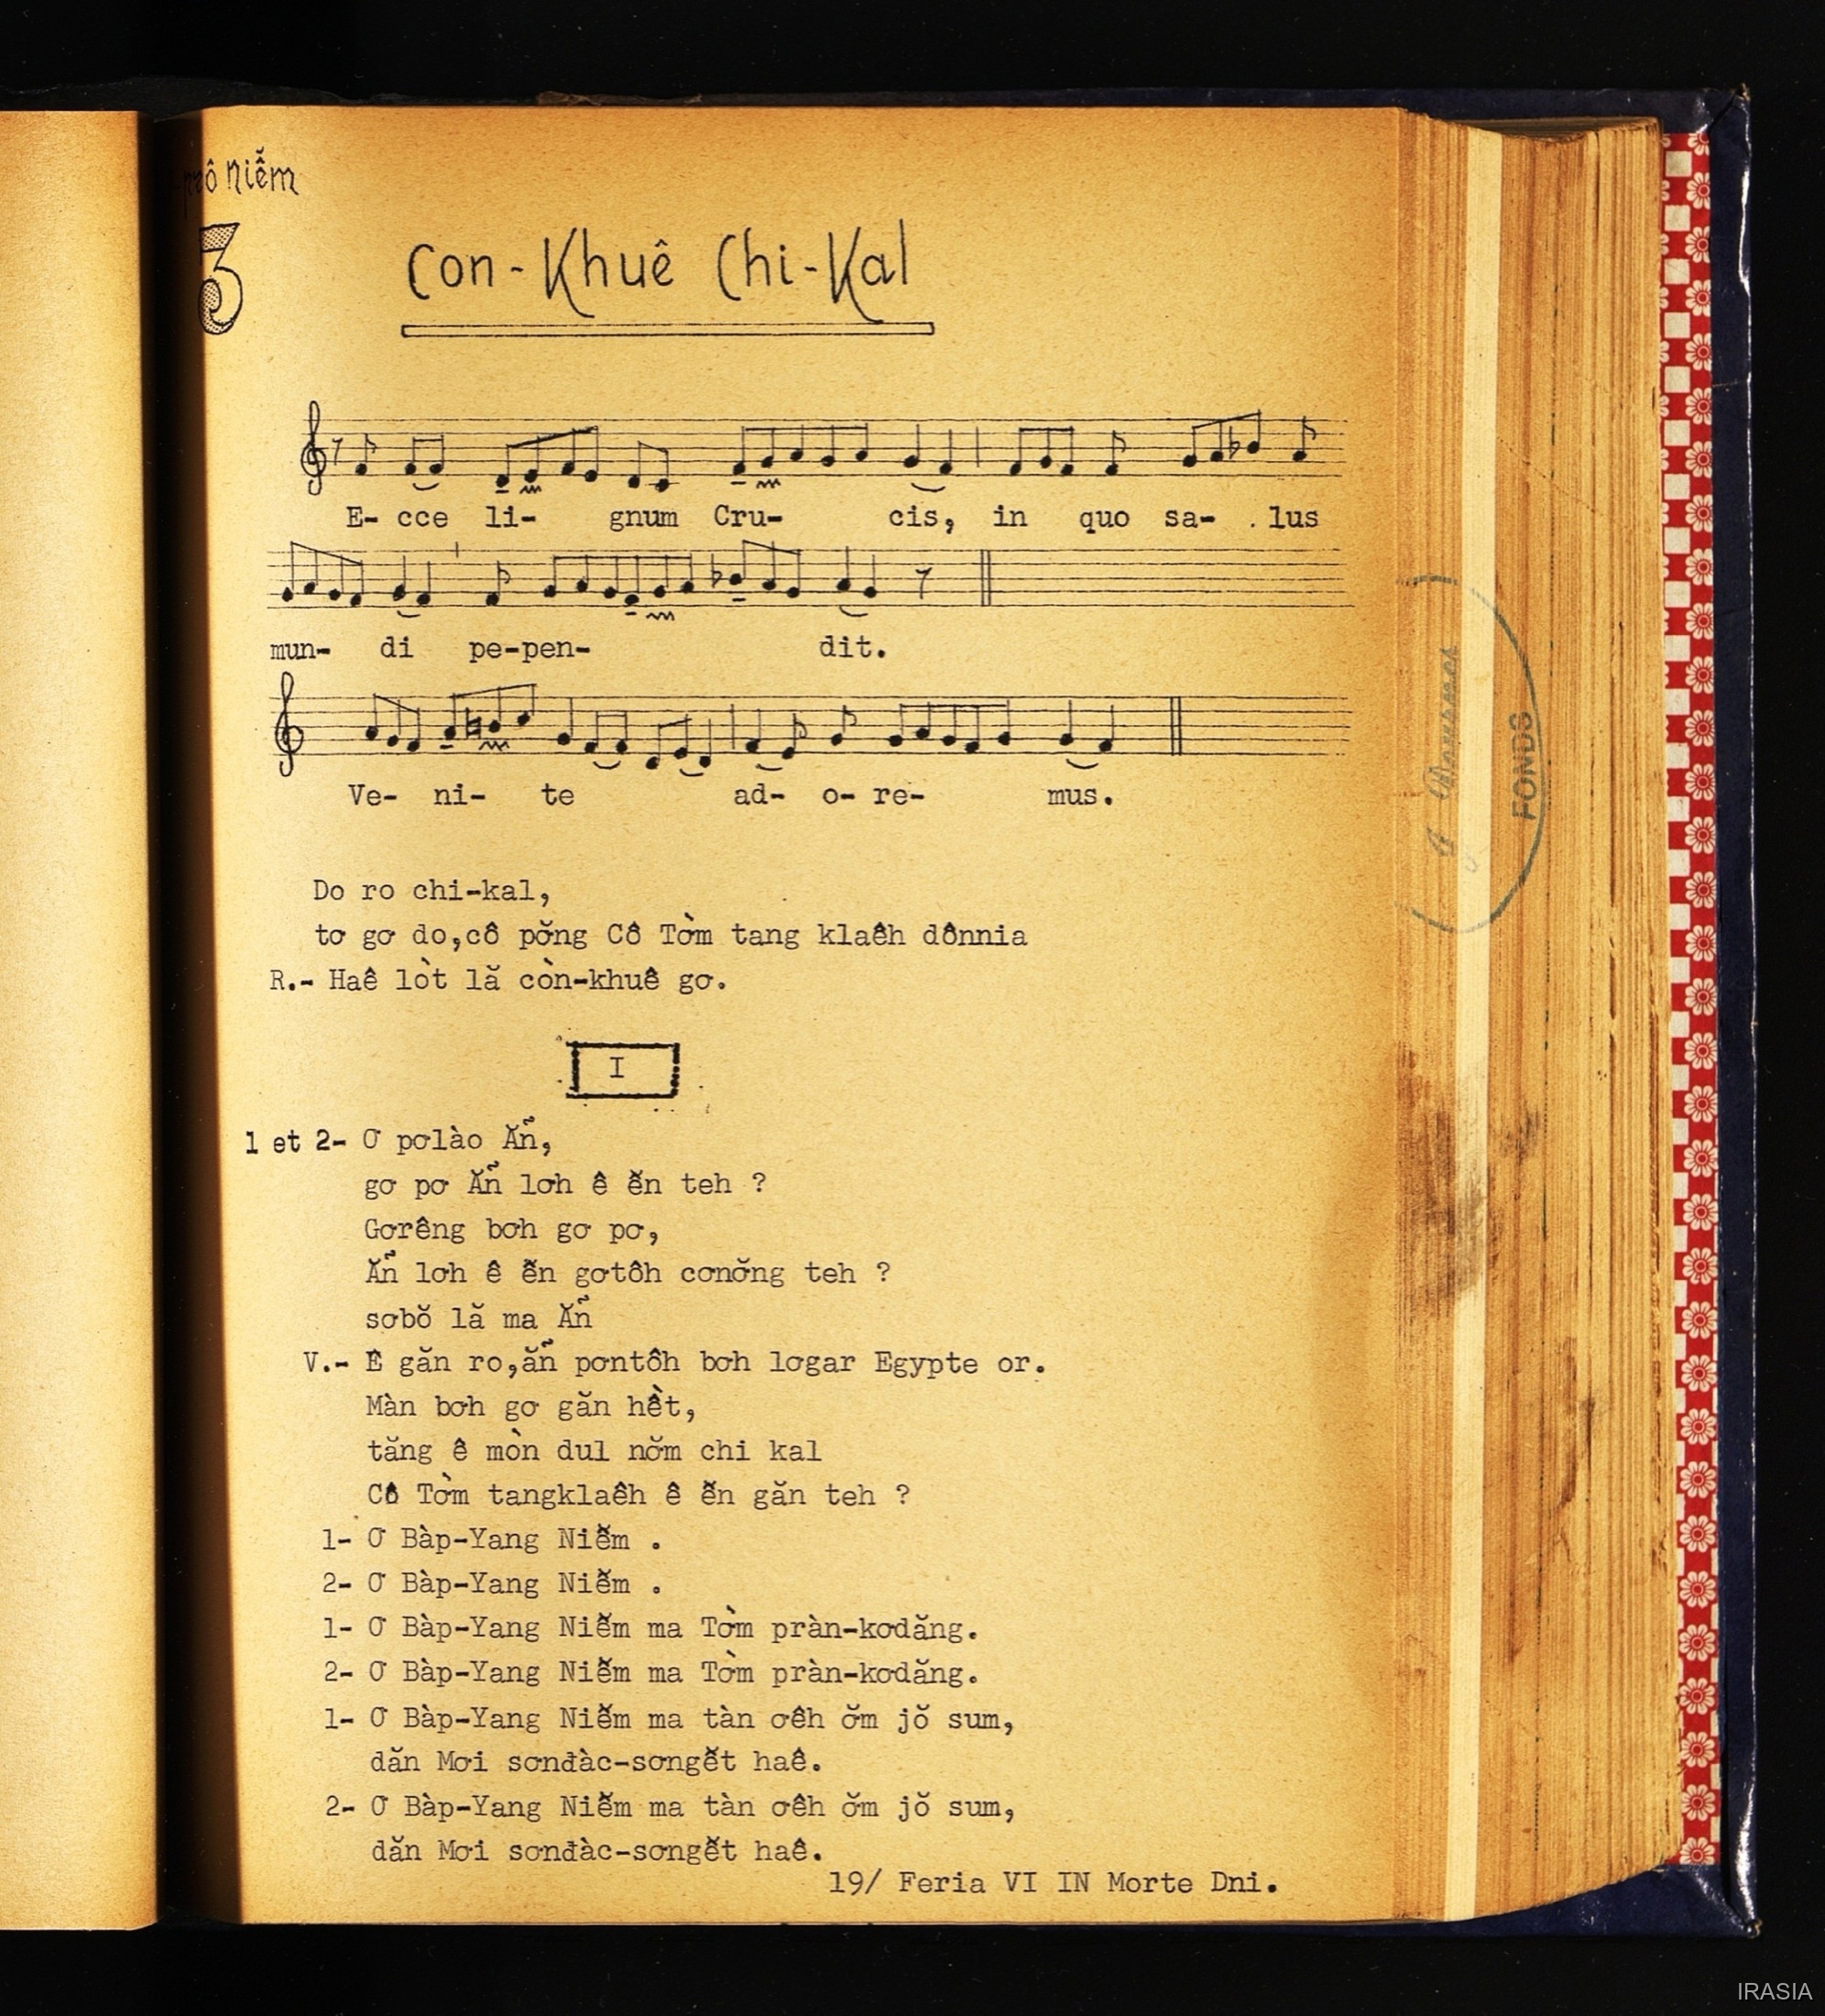 niễm
3
Con-Khuê Chi-Kal
E- cce li- gnum Cru- cis, in quo sa- . lus
mun- di pe-pen- dit.
Ve- ni- te ad- o- re- mus.
Do ro chi-kal,
tơ gơ do,cô pơ̆ng Cô Tờm tang klaêh dônnia
R.- Haê lòt lă còn-khuê gơ.
I
1 et 2- Ơ pơlào Ăñ,
gơ pơ Ăñ lơh ê ê̆n teh ?
Gơrêng bơh gơ pơ,
Ăñ lơh ê ê̆n gơtôh cơnơ̆ng teh ?
sơbŏ lă ma Ăñ
V.- Ê găn ro,ăñ pơntôh bơh lơgar Egypte or.
Màn bơh gơ găn hềt,
tăng ê mòn dul nơ̆m chi kal
Cô Tờm tangklaêh ê ê̆n găn teh ?
1- Ơ Bàp-Yang Niê̆m .
2- Ơ Bàp-Yang Niê̆m .
1- Ơ Bàp-Yang Niê̆m ma Tờm pràn-kơdăng.
2- Ơ Bàp-Yang Niê̆m ma Tờm pràn-kơdăng.
1- Ơ Bàp-Yang Niê̆m ma tàn ơêh ơ̆m jŏ sum,
dăn Mơi sơnđàc-sơngê̆t haê.
2- Ơ Bàp-Yang Niê̆m ma tàn ơêh ơ̆m jŏ sum,
dăn Mơi sơnđàc-sơngê̆t haê.
19/ Feria VI IN Morte Dni.
FONDS
IRASIA